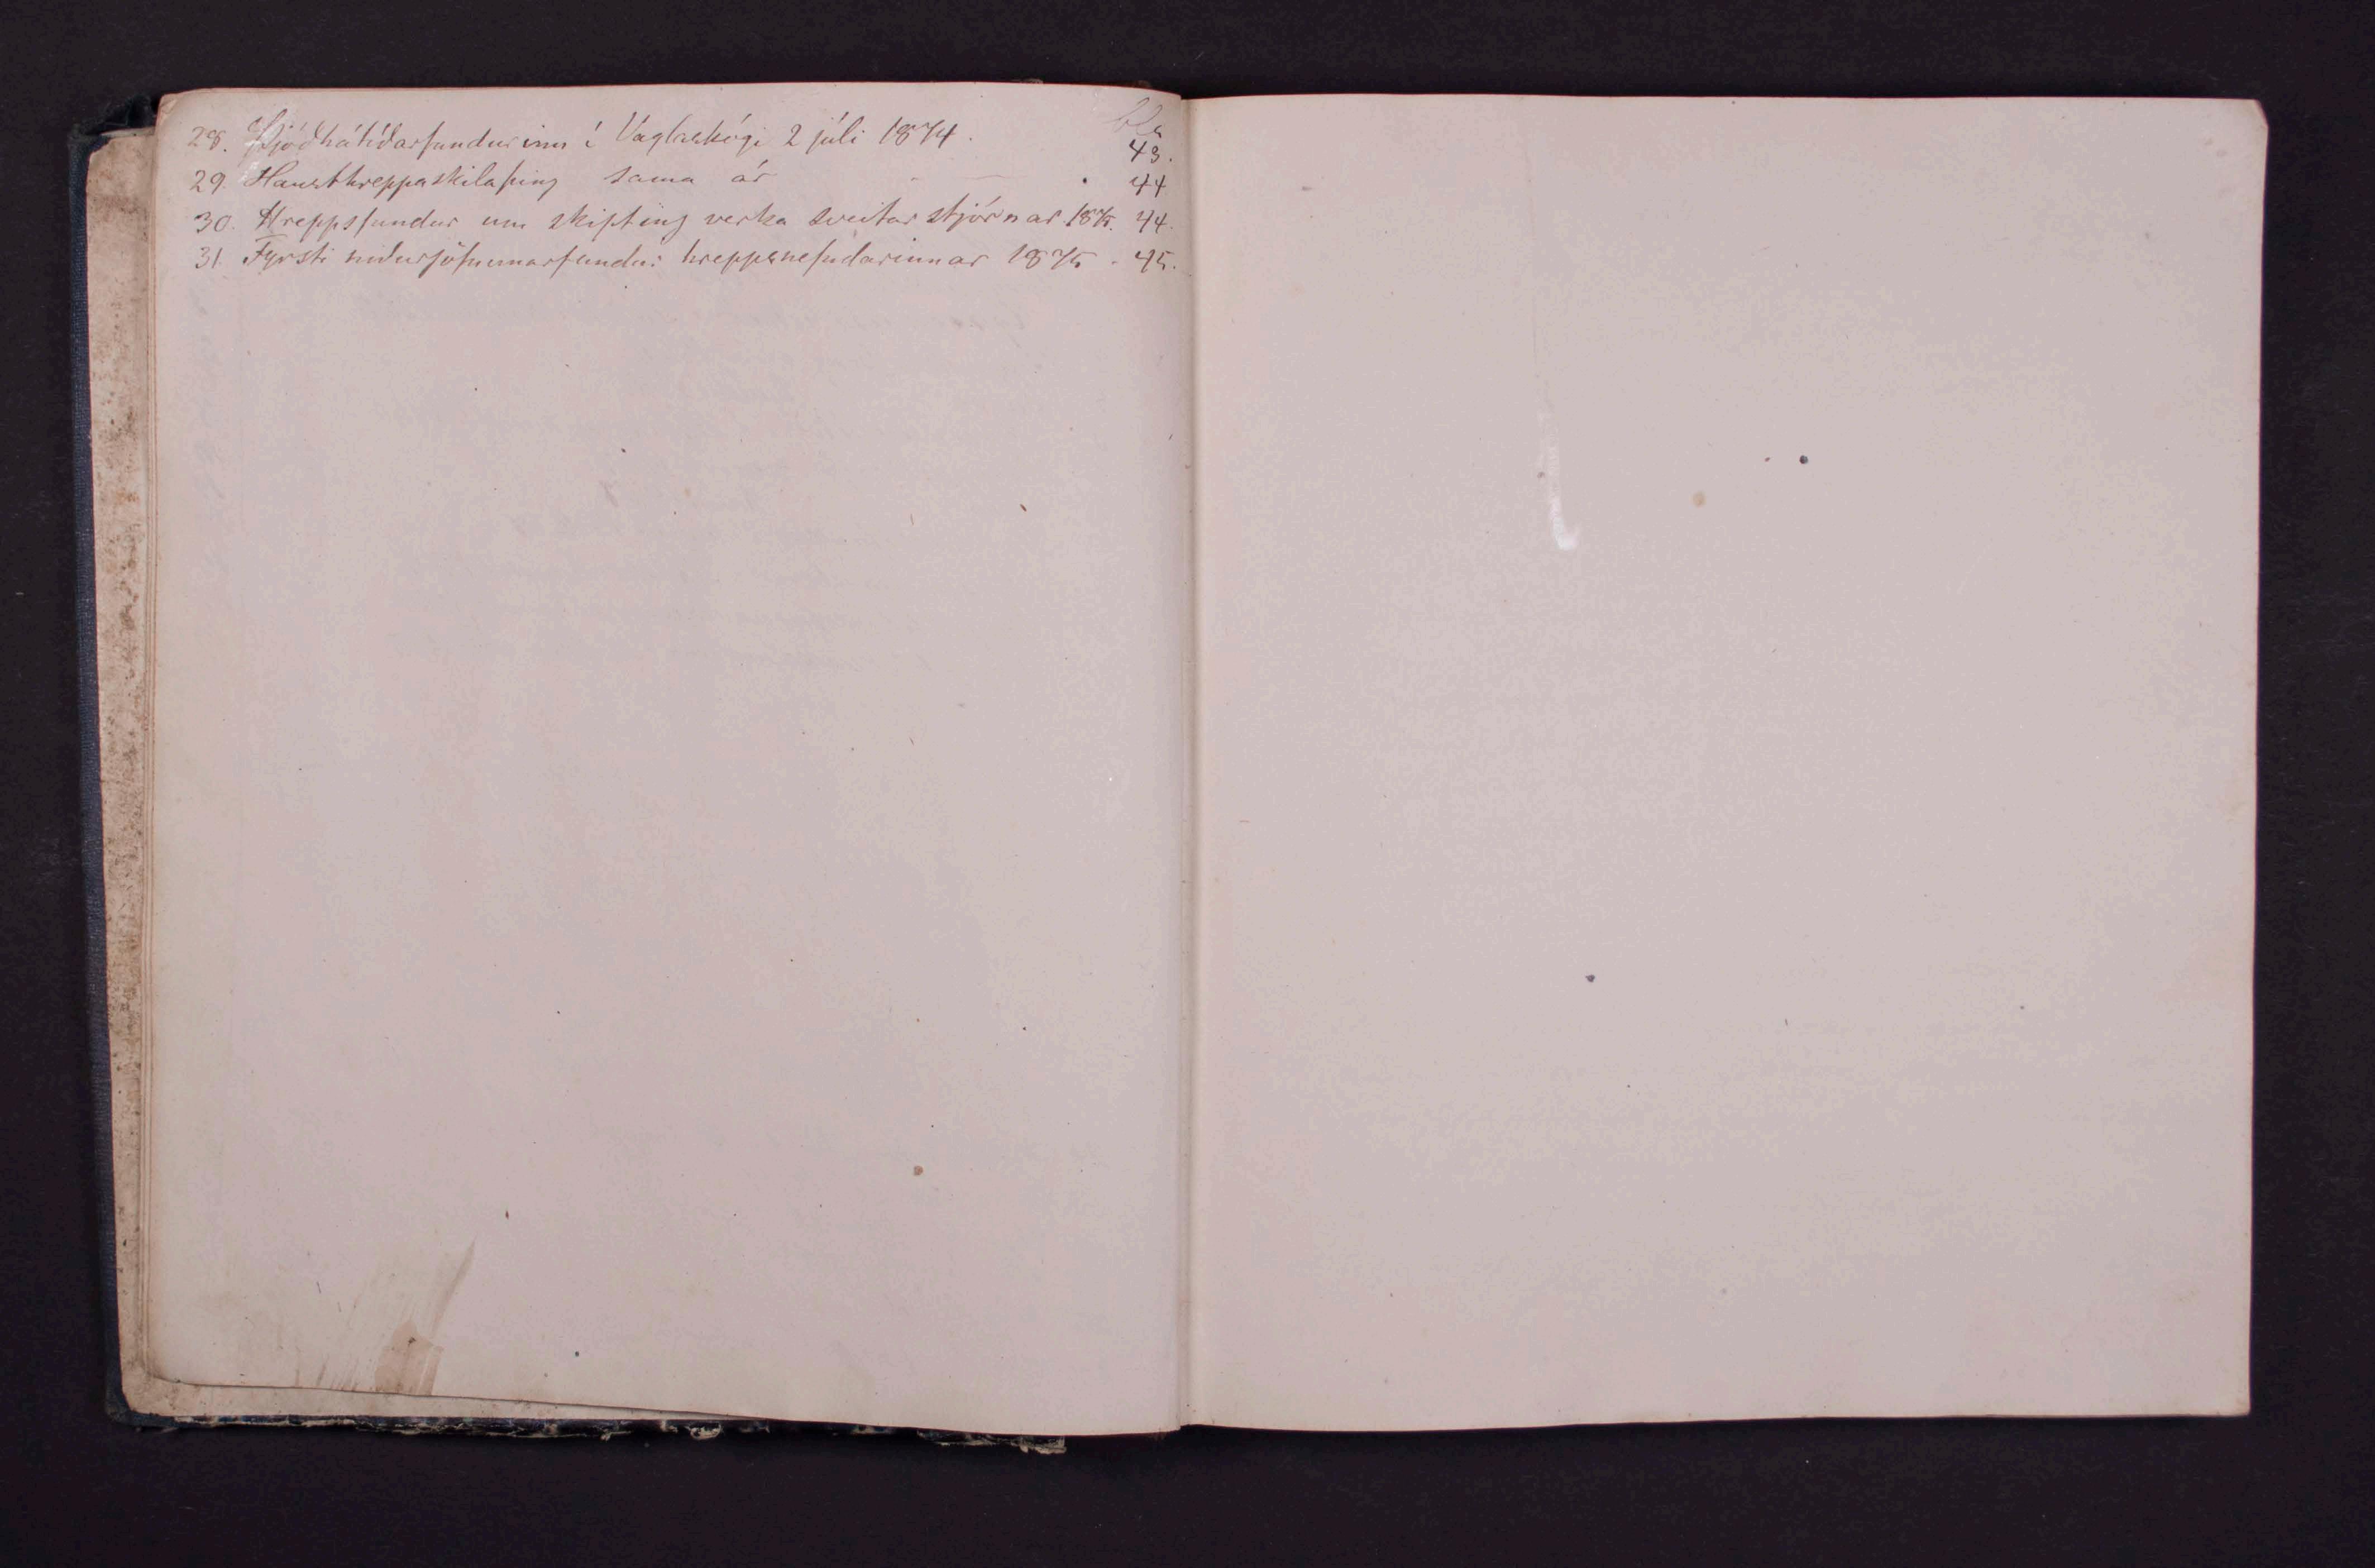 bls
28. Þjóðhátíðarfundurinn í Vaglaskógi 2 júli 1874. 43.
29. Hausthreppaskilaþing sama ár - — . 44
30. Hreppsfundur um skipting verka sveitar stjórnar 1875. 44.
31. Fyrsti niðurjöfnunarfundur hreppsnefndarinnar 1875 - 45.